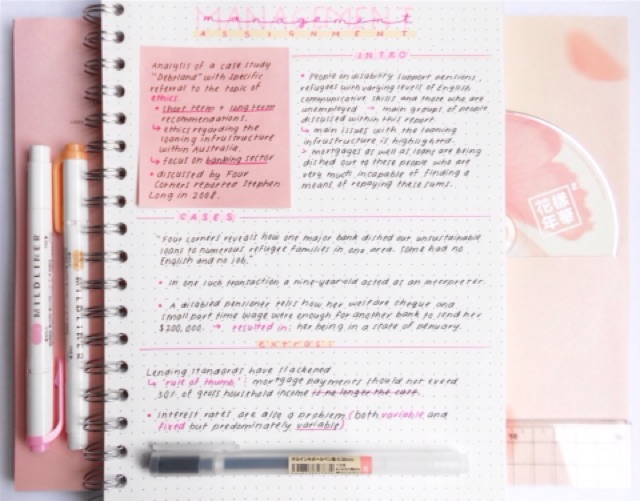 MANAGEMENT
management
ASSIGNMENT
Analysis of a case study
"Debtland" with specific
referral to the topic of
ethics.
• short term + long term
recommendations.
↳ ethics regarding the
loaning infrustructure
within Australia.
↳ focus on banking sector
• discussed by Four
Corners reported Stephen
Long in 2008.
INTRO
• People on disability support pensions,
refugees with varying levels of English
communicative skills and those who are
unemployed → main groups of people
discussed within this report.
↳ main issues with the loaning
infrustructure is highlighted.
> mortgages as well as loans are being
dished out to these people who are
very much incapable of finding a
means of repaying these sums.
CASES
"Four Corners reveals how one major bank dished out unsustainable
loans to numerous refugee families in one area. Some had no
English and no job."
• In one such transaction a nine-year-old acted as an interpreter.
• A disabled pensioner tells how her welfare cheque and
small part time wage were enough for another bank to send her
$200,000. → resulted in: her being in a state of penury.
extras
Lending standards have slackened
↳ 'rule of thumb': mortgage payments should not exeed
30% of gross household income is no longer the case.
• interest rates are also a problem (both variable and
fixed but predominately variable)
MILDLINER
MILDLINER
花樣
年華